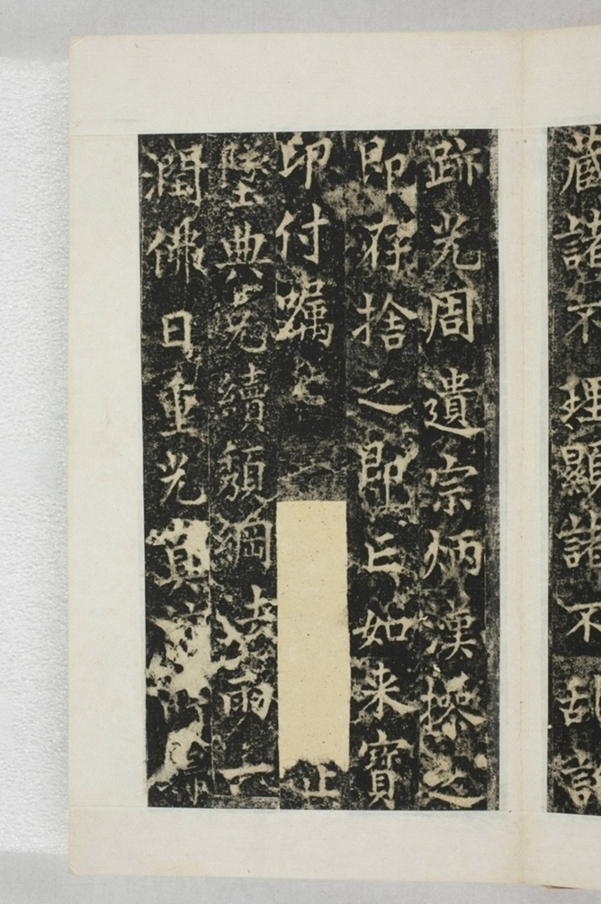 藏諸不理顯諸不亂
跡光周遺宗炳漢操之
即存捨之即亡如来寶
印付囑
墜典克續頹綱法雨一
潤佛日重光